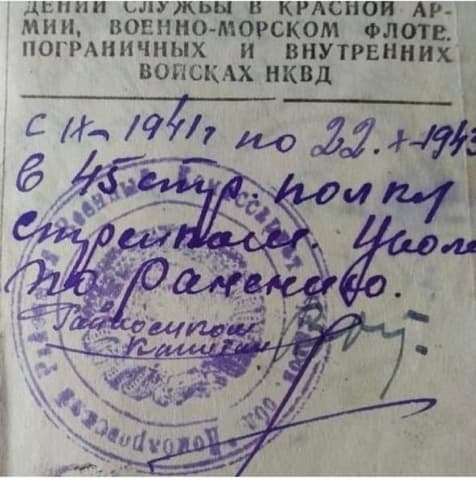 ДЕНИИ СЛУЖБЫ В КРАСНОЙ АР-
МИИ, ВОЕННО-МОРСКОМ ФЛОТЕ.
ПОГРАНИЧНЫХ И ВНУТРЕННИХ
ВОЙСКАХ НКВД
с IX-1941г по 22.X-1943
в 45 стр. полку
стрелком. Уволе
по ранению.
Райвоенком
Капитан